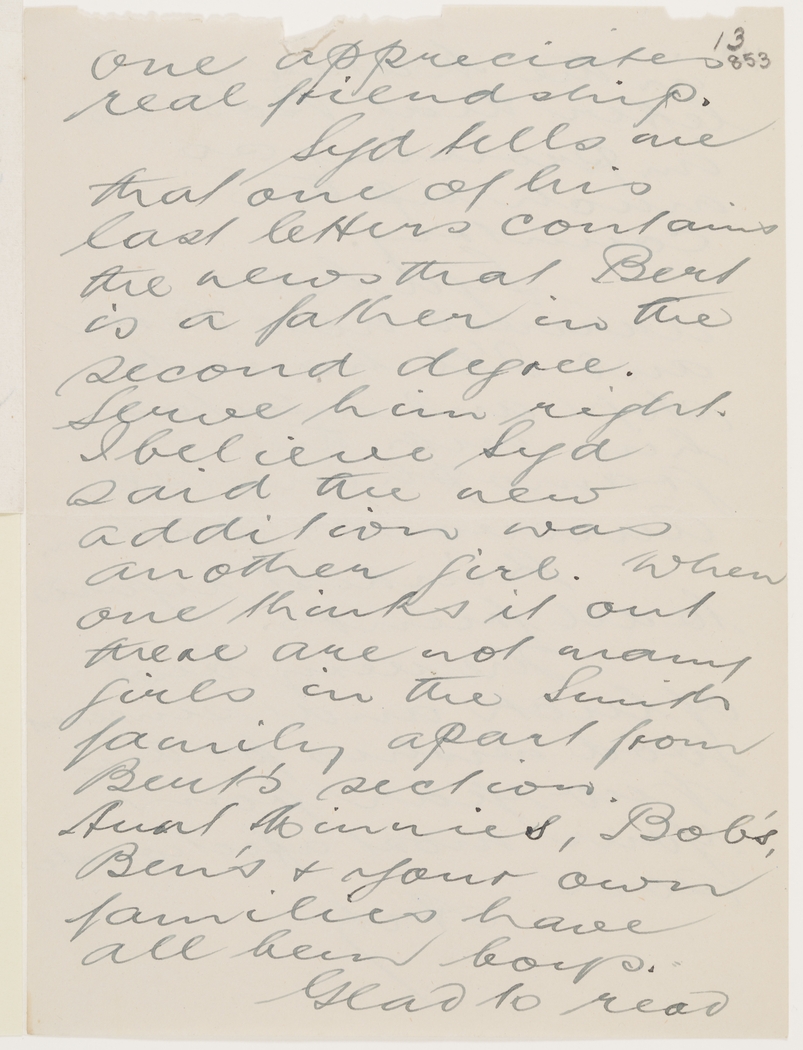 13
853
one appreciates
real friendship.
Syd tells me
that one of his
last letters contains
the news that Bert
is a father in the
second degree.
Serve him right.
I believe Syd
said the new
addition was
another girl. When
one thinks it out
there are not many
girls in the Smith
family apart from
Bert's section.
Aunt Minnies, Bob's,
Ben's & your own
families have
all been boys.
Glad to read